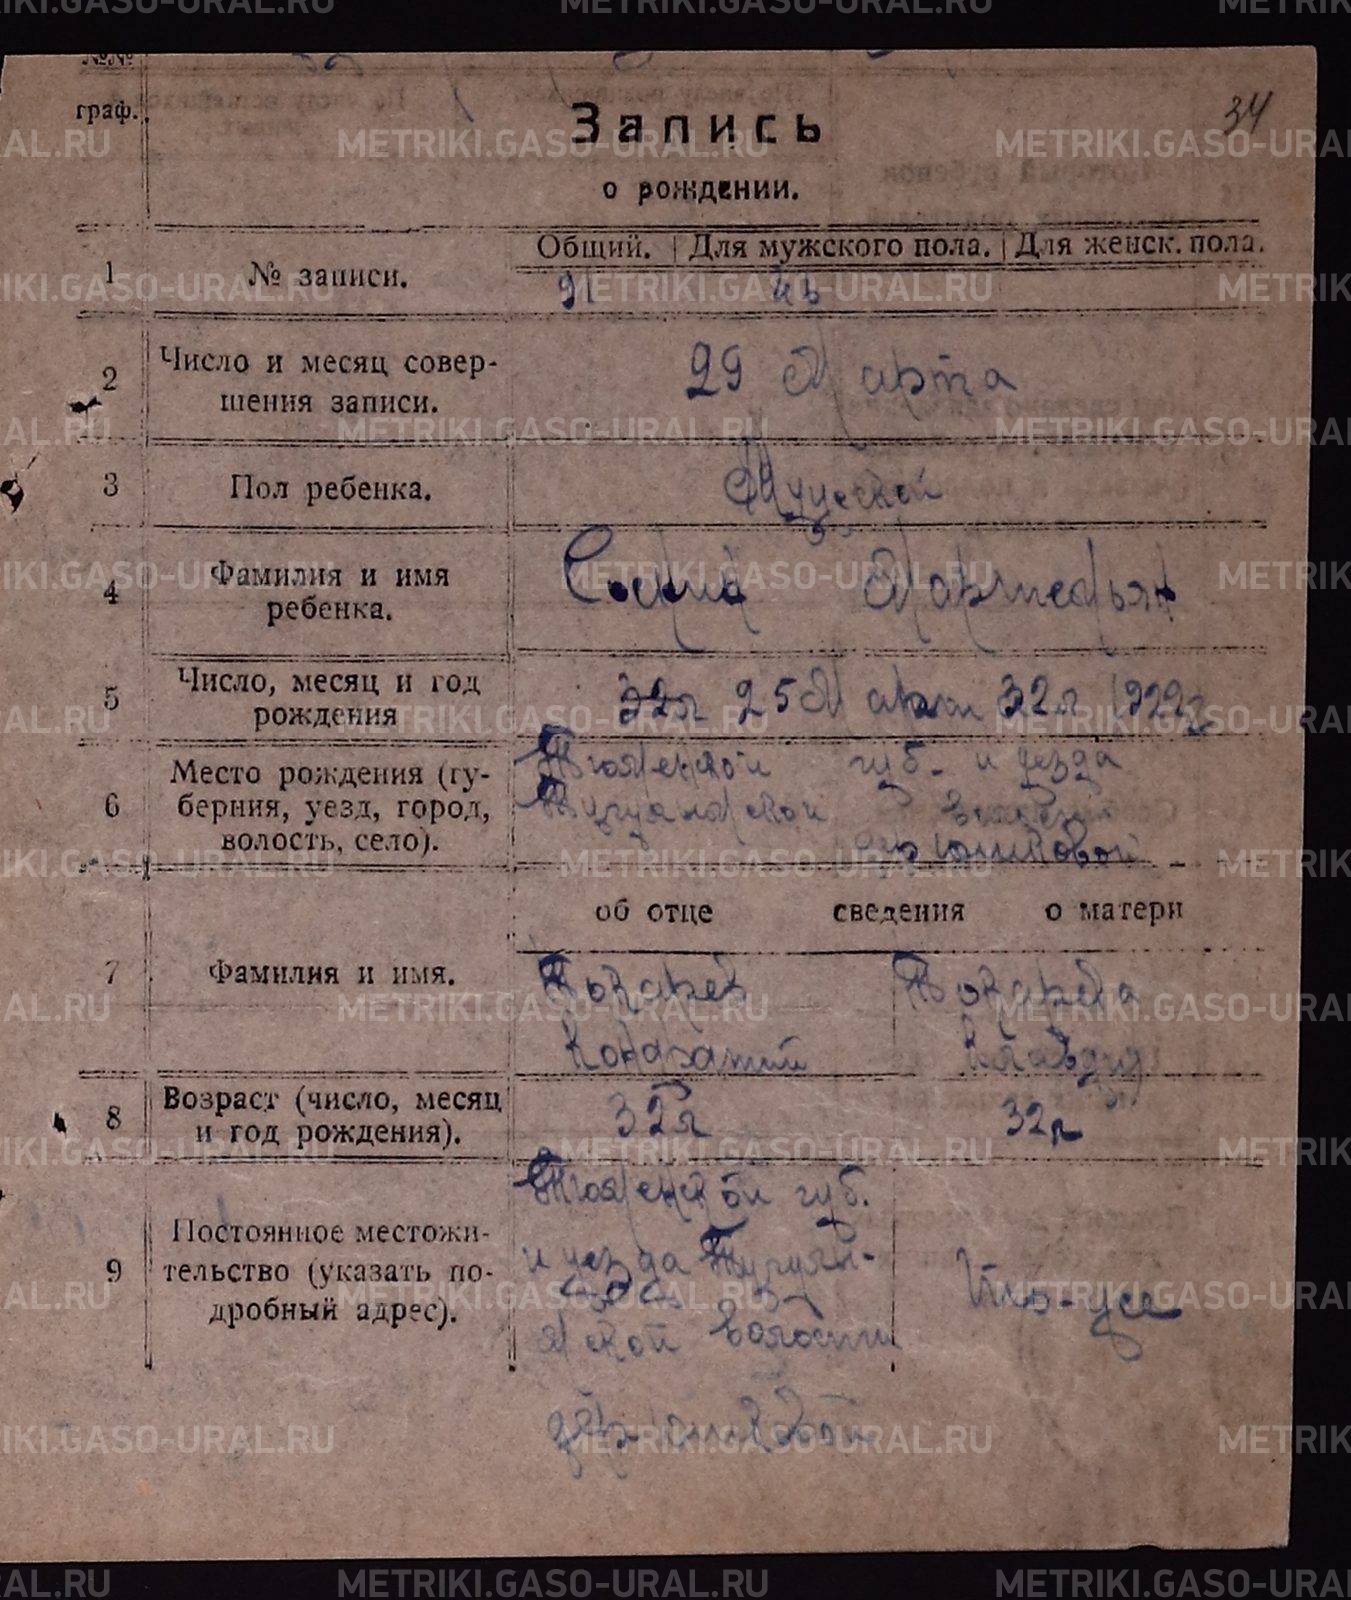 №№
граф.
34
Запись
о рождении.
Общий. Для мужского пола. Для женск. пола.
1 № записи. 91 43
2 Число и месяц совер-
шения записи.
29 Марта
3 Пол ребенка. Мужской
4 Фамилия и имя
ребенка.
5 Число, месяц и год
рождения
25 Марта 1922г
6 Место рождения (гу-
берния, уезд, город,
волость, село).
Тюменской губ. и уезда
волости
об отце сведения о матери
7 Фамилия и имя.
Токарев Токарева
Кондратий Клавдия
8 Возраст (число, месяц
и год рождения).
32л 32л
9 Постоянное местожи-
тельство (указать по-
дробный адрес).
Тюменской губ.
и уезда Тугулым-
ской волости
дер
METRIKI.GASO-URAL.RU